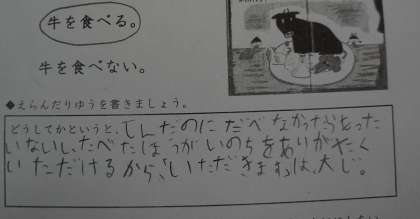 牛を食べる。
牛を食べない。
◆えらんだりゆうを書きましょう。
どうしてかというと、しんだのにだべなかったらもった
いないし、たべたほうがいのちをありがたく
いただけるから、「いただきます」は、大じ。